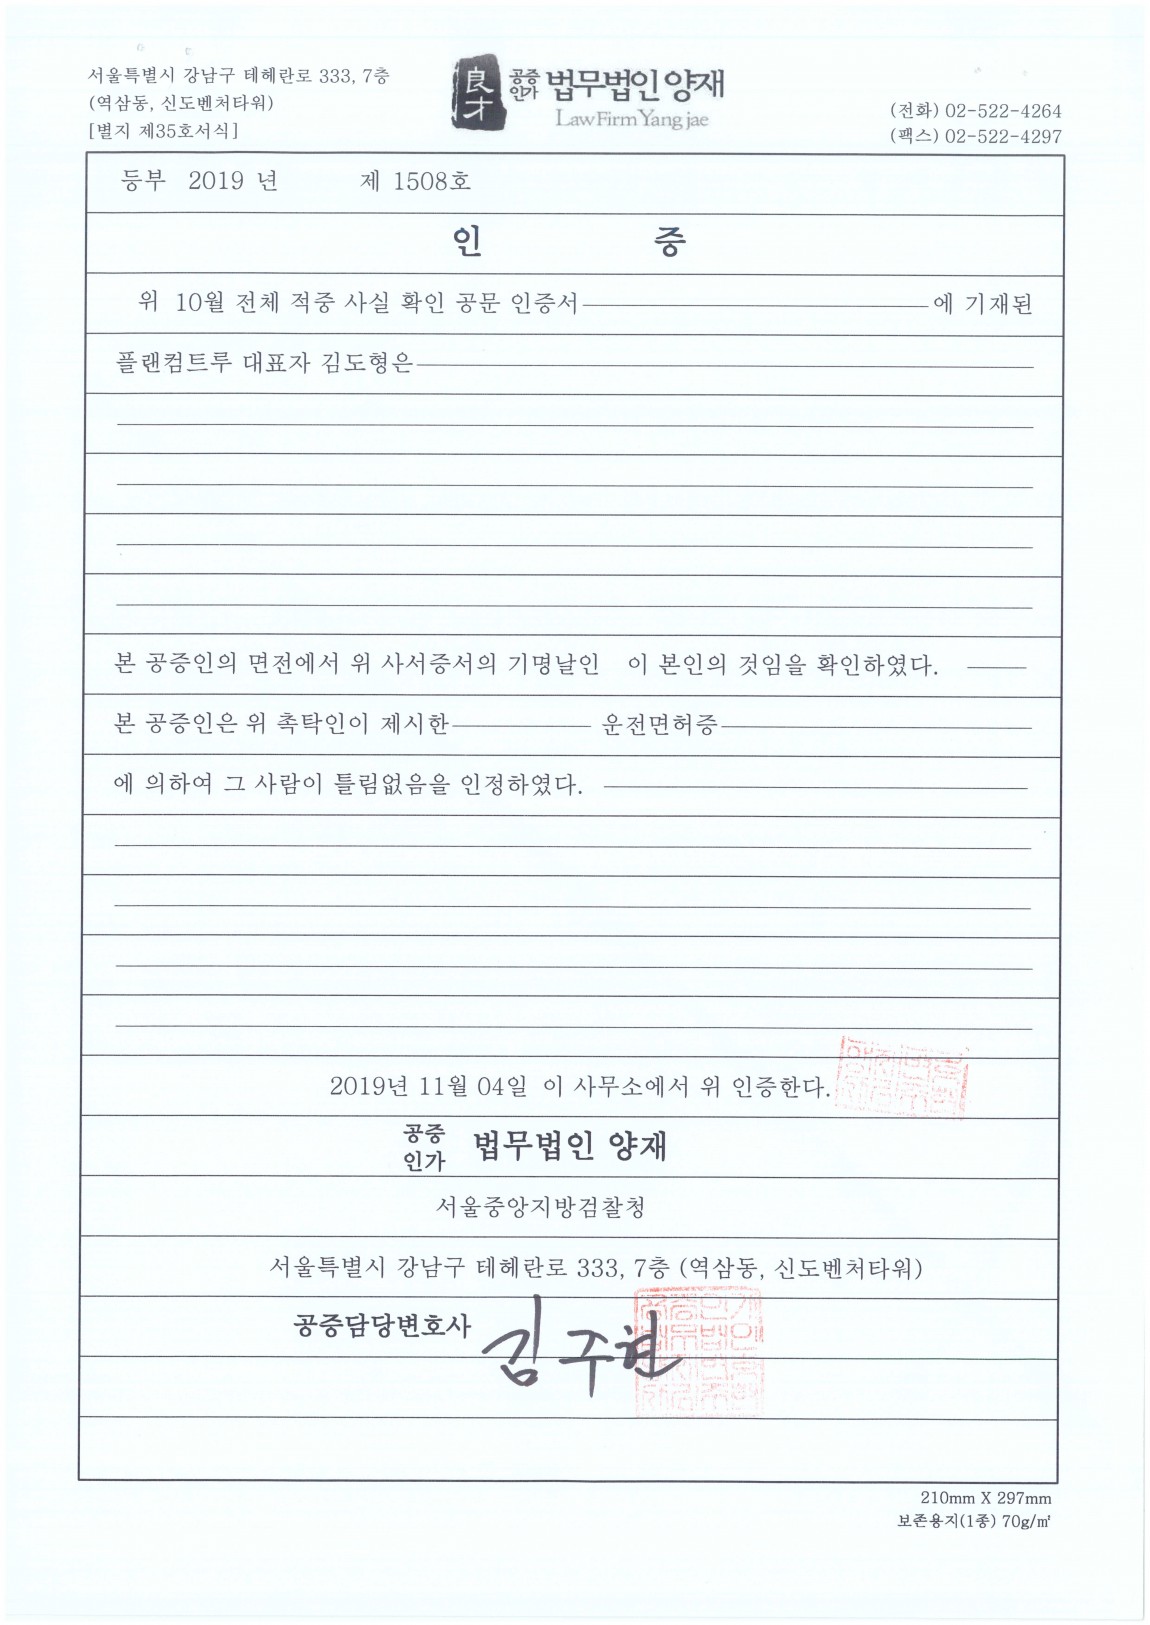 서울특별시 강남구 테헤란로 333, 7층
(역삼동, 신도벤처타워)
[별지 제35호서식]
良才
공증인가 법무법인 양재
Law Firm Yang jae
(전화) 02-522-4264
(팩스) 02-522-4297
등부 2019 년 제 1508호
인 증
위 10월 전체 적중 사실 확인 공문 인증서 에 기재된
플랜컴트루 대표자 김도형은
본 공증인의 면전에서 위 사서증서의 기명날인 이 본인의 것임을 확인하였다.
본 공증인은 위 촉탁인이 제시한 운전면허증
에 의하여 그 사람이 틀림없음을 인정하였다.
2019년 11월 04일 이 사무소에서 위 인증한다.
공증인가 법무법인 양재
서울중앙지방검찰청
서울특별시 강남구 테헤란로 333, 7층 (역삼동, 신도벤처타워)
공증담당변호사 김주현
210mm X 297mm
보존용지(1종) 70g/㎡